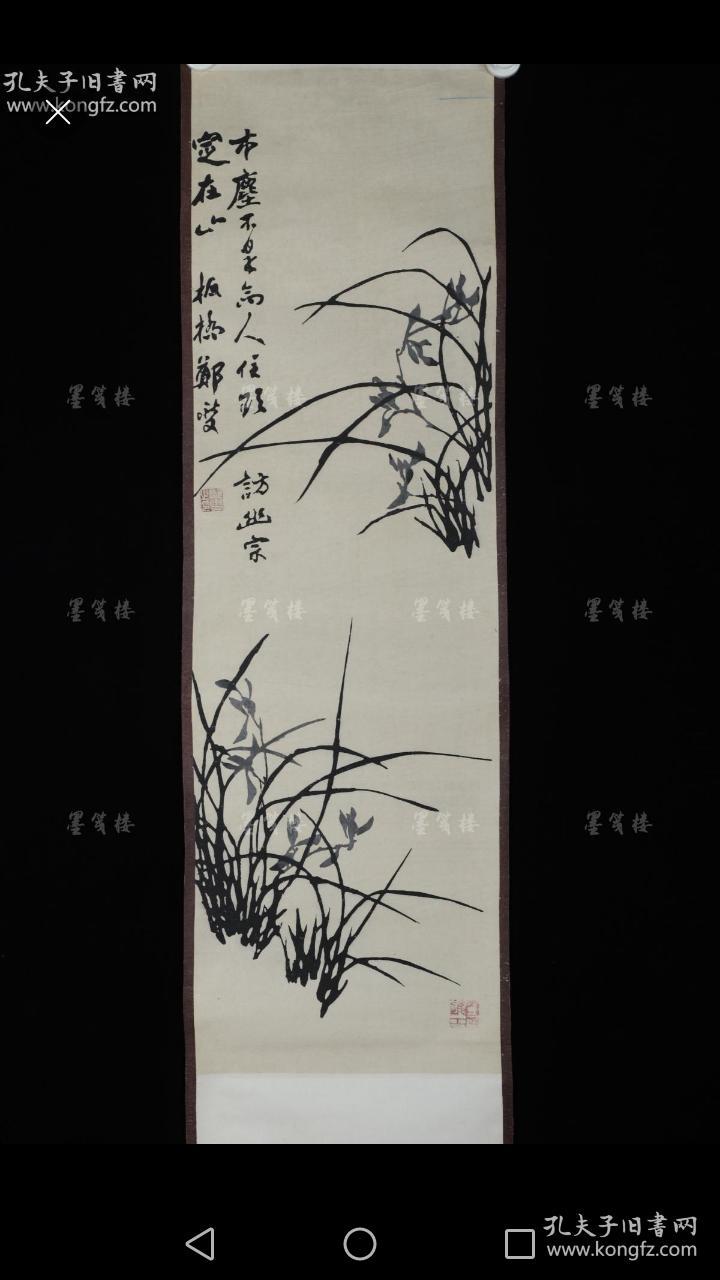 孔夫子旧書网
www.kongfz.com
市塵不是高人住欵 訪幽宗
定在山 板橋鄭燮
墨笺楼 墨笺楼 墨笺楼 墨笺楼
墨笺楼 墨笺楼 墨笺楼 墨笺楼
墨笺楼 墨笺楼 墨笺楼 墨笺楼
孔夫子旧書网
www.kongfz.com